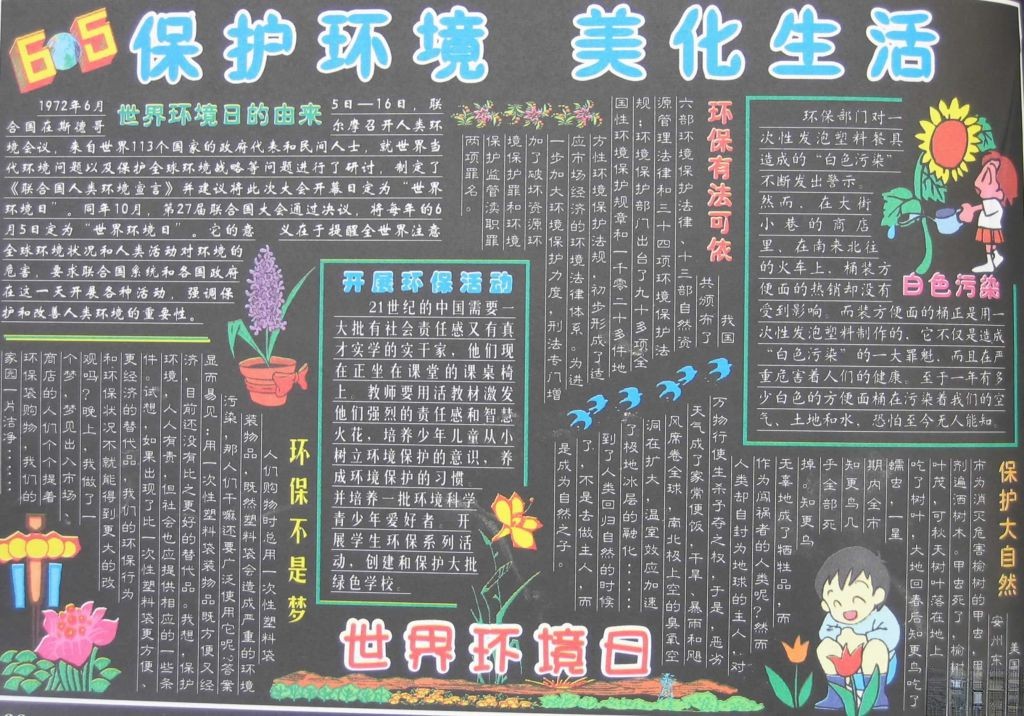 6 5
保护环境 美化生活
世界环境日的由来
1972年6月
5日—16日，联
合国在斯德哥
尔摩召开人类环
境会议，来自世界113个国家的政府代表和民间人士，就世界当
代环境问题以及保护全球环境战略等问题进行了研讨，制定了
《联合国人类环境宣言》并建议将此次大会开幕日定为“世界
环境日”。同年10月，第27届联合国大会通过决议，将每年的6
月5日定为“世界环境日”。它的意 义在于提醒全世界注意
全球环境状况和人类活动对环境的
危害，要求联合国系统和各国政府
在这一天开展各种活动，强调保
护和改善人类环境的重要性。
环保有法可依
我国
共颁布了
六部环境保护法律、十三部自然资
源管理法律和三十四项环境保护法
规；环境保护部门出台了九十多项全
国性环境保护规章和一千零二十多件地
方性环境保护法规，初步形成了适
应市场经济的环境法律体系。为进
一步加大环境保护力度，刑法专门增
加了破坏资源环
境保护罪和环境
保护监管渎职罪
两项罪名。
环保部门对一
次性发泡塑料餐具
造成的“白色污染”
不断发出警示。
然而，在大街
小巷的商店
里、在南来北往
的火车上，桶装方
便面的热销却没有
受到影响。而装方便面的桶正是用一
次性发泡塑料制作的，它不仅是造成
“白色污染”的一大罪魁，而且在严
重危害着人们的健康。至于一年有多
少白色的方便面桶在污染着我们的空
气、土地和水，恐怕至今无人能知。
白色污染
开展环保活动
21世纪的中国需要一
大批有社会责任感又有真
才实学的实干家，他们现
在正坐在课堂的课桌椅
上。教师要用活教材激发
他们强烈的责任感和智慧
火花，培养少年儿童从小
树立环境保护的意识，养
成环境保护的习惯
并培养一批环境科学
青少年爱好者，开
展学生环保系列活
动，创建和保护大批
绿色学校。
环保不是梦
人们购物时总用一次性塑料袋
装物品，既然塑料袋会造成严重的环境
污染，那人们干嘛还要广泛使用它呢？答案
显而易见：用一次性塑料袋装物品既方便又经
济，目前还没有比之更好的替代品。我想，保护
环境，人人有责，但社会也应提供相应的一些条
件。试想，如果出现了比一次性塑料袋更方便、
更经济的替代品，我们的环保行为
和环保状况不就能得到更大的改
观吗？晚上，我做了一
个梦，梦见出入市场
商店的人们个个提着
环保袋购物，我们的
家园一片洁净……
保护大自然
美国
安州东
市为消灭危害榆树的甲虫，用
剂遍洒树木。甲虫死了，榆树
叶茂，可秋天树叶落在地上
吃了树叶，大地回春后知更鸟吃了
蠕虫，一星
期内全市
知更鸟几
乎全部死
掉。知更鸟
无辜地成了牺牲品，而
作为闯祸者的人类呢？然而
人类却自封为地球的主人，对
万物行使生杀予夺之权，于是，恶劣
天气成了家常便饭，干旱、暴雨和飓
风席卷全球，南北极上空的臭氧空
洞在扩大，温室效应加速
了极地冰层的融化……
到了人类回归自然的时候
了，不是去做主人，而
是成为自然之子。
世界环境日